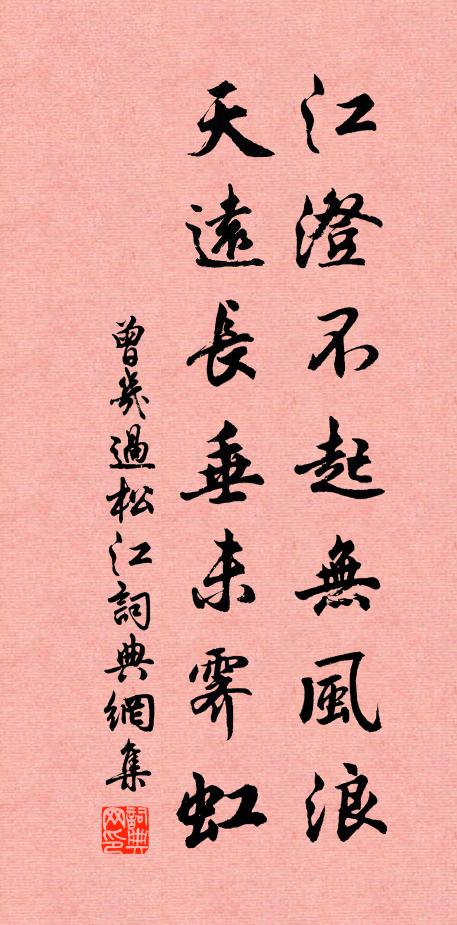 江澄不起無風浪
天遠長垂未霽虹
曾幾過松江詞典網集
詞典网印